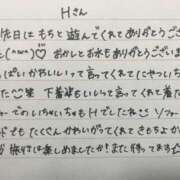 Hさん
昨日は もちと 遊んでくれて ありがとうござい
た(^w^)♡ おかしと お水も ありがとうござい
ぱい かわいいって 言ってくれて にやついち
た♡笑 下着姿も いいって 言ってくれて
ーでの いちゃいちゃも Hでしたね♡ ソファー
でも たくさん かわいがってくれて きもちよか
旅行は 楽しめましたか! また 待ってます♡